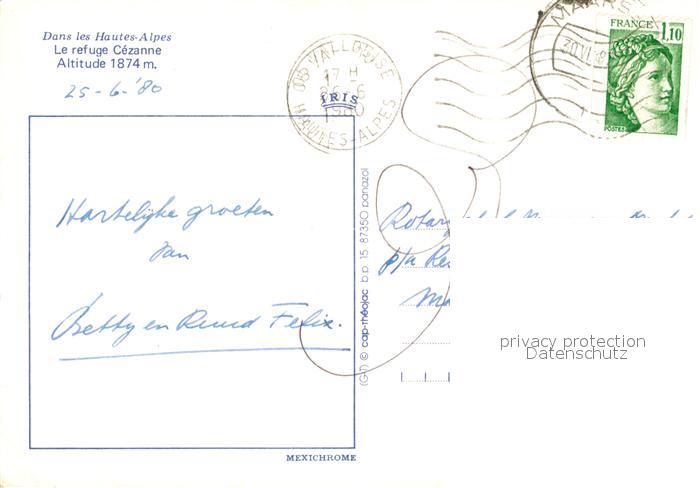 Dans les Hautes-Alpes
Le refuge Cézanne
Altitude 1874 m.
25-6-'80
05 VALLOUISE
17 H
26-6
1980
HAUTES-ALPES
IRIS
FRANCE
1,10
POSTES
Hartelijke groeten
van
Betty en Ruud Felix.
(G-T) © cap-théojac b.p. 15 87350 panazol
p/a
MEXICHROME
privacy protection
Datenschutz